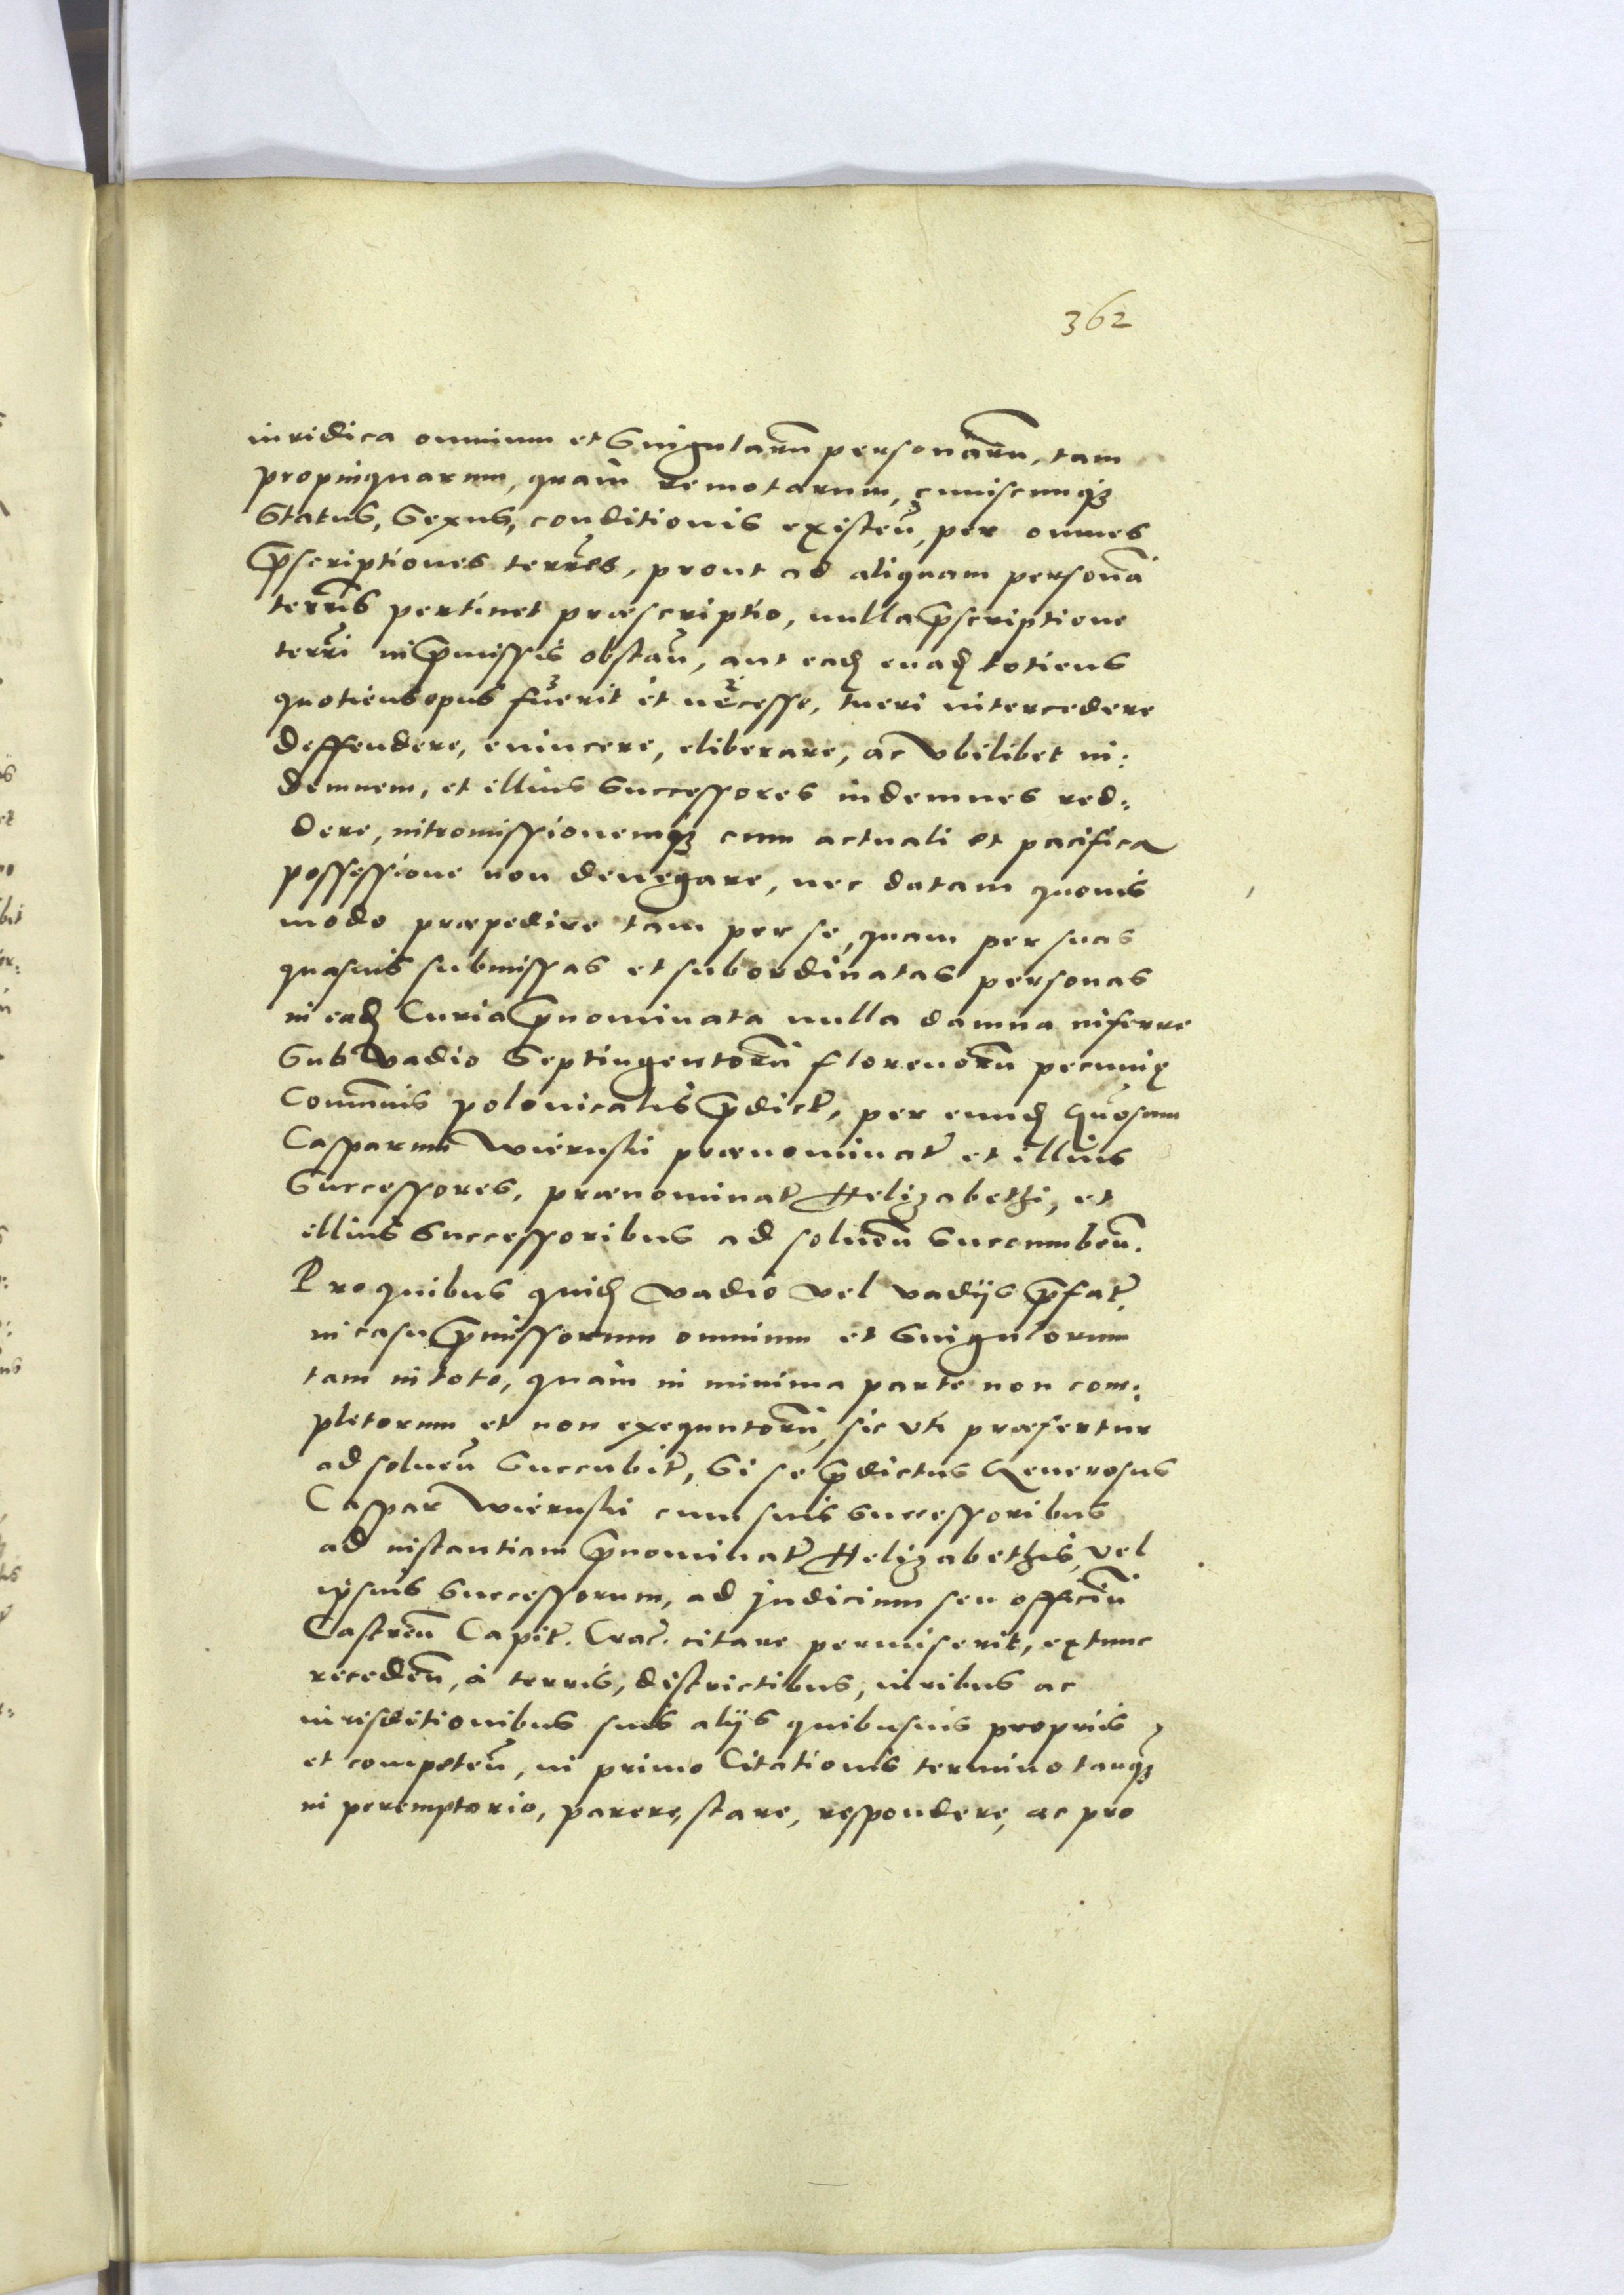 362
iuridica omnium et Singularũ personarũ, tam
propinquarum, quam remotarum, cuiuscunqꝫ
Status, Sexus, conditionis existeñ, per omnes
pͤscriptiones terr̃res, prout ad aliquam personã
terr̃ris pertinet præscriptio, nulla pͤscriptione
terr̃ri in pͤmissis obstañ, aut eadꝫ euadꝫ totiens
quotiens opus fuerit et necesse, tueri intercedere
deffendere, euincere, eliberare, ac vbilibet in:
demnem, et illius Successores indemnes red:
dere, intromissionemqꝫ cum actuali et pacifica
possessione non denegare, nec datam quouis
modo præpedire tam per se, quam per suas
quasuis submissas et subordinatas personas
in eadꝫ Curia pͤnominata nulla damna inferre
Sub Vadio Septingentorũ florenorũ pecunię
Com̃unis polonicalis pͤdict̃, per eundꝫ Gñosum
Casparum Wiernski prænominat̃ et illius
Successores, prænominat̃ Helizabethi, et
illius Successoribus ad soluẽn Succumbẽn.
Pro quibus quidꝫ vadio vel vadijs pͤfat̃,
in casu pͤmissorum omnium et Singulorum
tam in toto, quam in minima parte non com:
pletorum et non exequutorũ, sic vti præfertur
ad solueñ Succubit̃, Si se pͤdictus Generosus
Caspar Wiernski cum suis Successoribus
ad instantiam pͤnominat̃ Helizabethis, vel
ipsius Successorum, ad Judicium seu officiũ
Castreñ Capit̃. Crac̃. citare permiserit, extunc
recedeñ, à terris, districtibus, iuribus ac
iurisditionibus suis alijs quibusuis proprijs,
et competeñ, in primo Citationis termino tanqꝫ
in peremptorio, parere, stare, respondere, ac pro